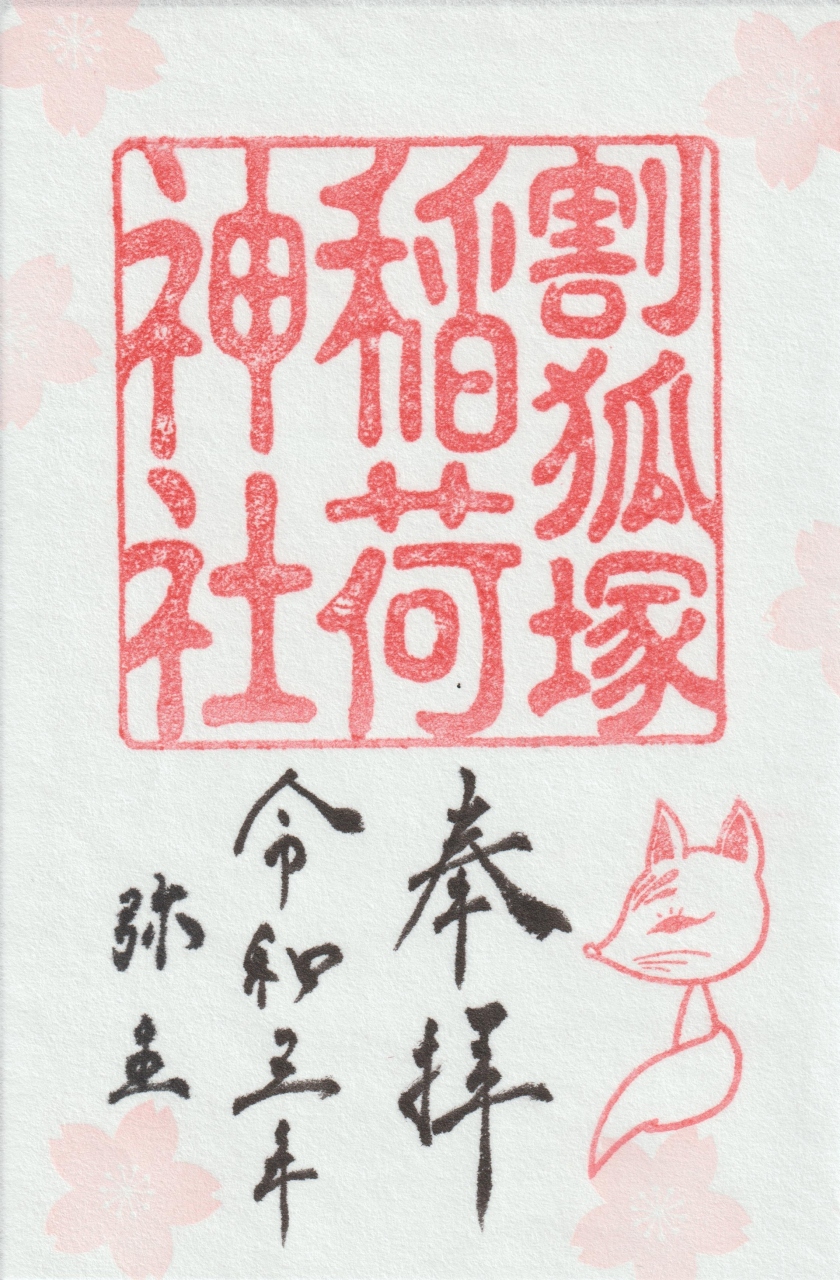 割狐塚
稲荷
神社
奉拝
令和三年
弥生